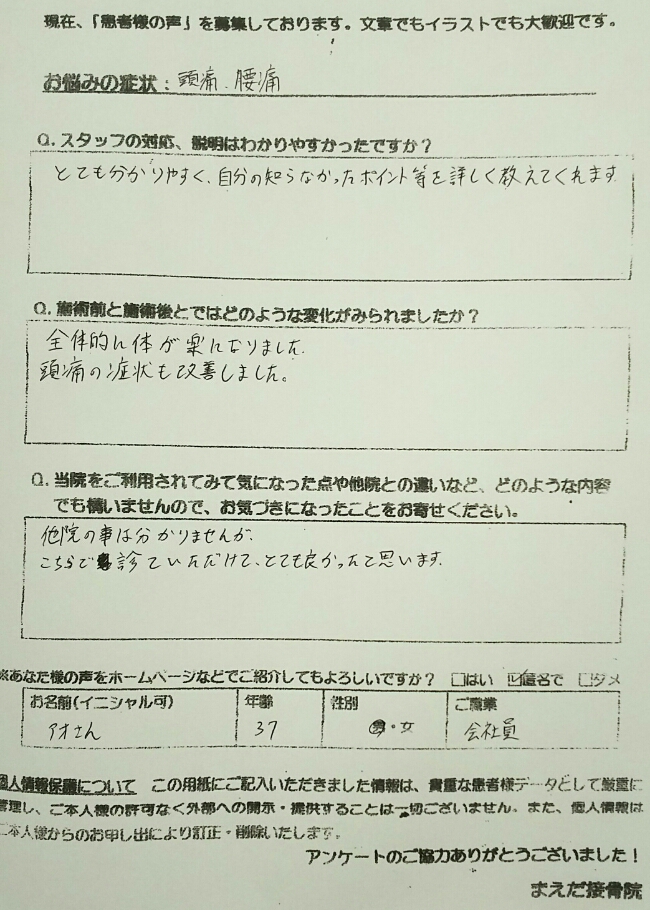 現在、「患者様の声」を募集しております。文章でもイラストでも大歓迎です。
お悩みの症状：頭痛、腰痛
Q.スタッフの対応、説明はわかりやすかったですか？
とても分かりやすく、自分の知らなかったポイント等を詳しく教えてくれます
Q.施術前と施術後とではどのような変化がみられましたか？
全体的に体が楽になりました。
頭痛の症状も改善しました。
Q.当院をご利用されてみて気になった点や他院との違いなど、どのような内容
でも構いませんので、お気づきになったことをお寄せください。
他院の事は分かりませんが、
こちらで診ていただけて、とても良かったと思います。
※あなた様の声をホームページなどでご紹介してもよろしいですか？ □はい ☑匿名で □ダメ
お名前(イニシャル可) 年齢 性別 ご職業
アオさん 37 男・女 会社員
個人情報保護について この用紙にご記入いただきました情報は、貴重な患者様データとして厳重に
管理し、ご本人様の許可なく外部への開示・提供することは一切ございません。また、個人情報は
ご本人様からのお申し出により訂正・削除いたします。
アンケートのご協力ありがとうございました！
まえだ接骨院